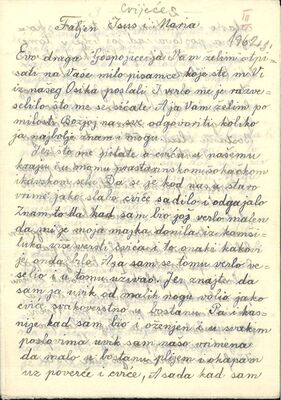 Cvijeće
Faljen Isus i Marija
1962
Evo draga Gospojice ja Vam želim otpi-
sati na Vaše milo pisamce koje ste mi Vi
iz našeg Osika poslali I verlo me je razve-
selilo što me se sićate A ja Vam želim po
milosti Božjoj na sve odgovoriti koliko
ja najbolje znam i mogu
Jest što me pitate o cviću u našemu
kraju i u momu prastaransko
ikavskom selu Da se je kod nas u staro
vrime jako slavo cviće sadilo i odgajalo
Znam to da kad sam bio još verlo malen
da mi je moja majka donila iz komši-
luka više versti cvića i to onaki kakoni
je onda bilo A ja sam se tomu verlo ve-
selio i u tomu uživao Jer znajte da
sam ja uvik od malih nogu volio jako
cviće svakoverstno u bostanu Pa i kas-
nije kad sam bio i oženjen i u svakim
poslovima uvik sam našo vrimena
da malo u bostanu plijem i okapam
uz poverće i cviće, A sada kad sam